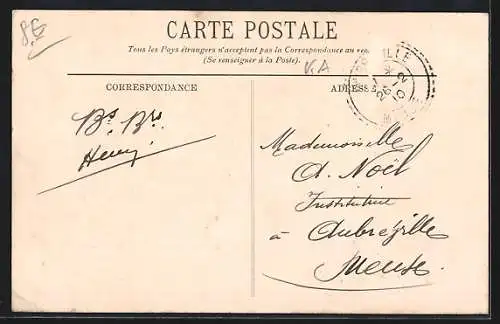 8 E
CARTE POSTALE
Tous les Pays étrangers n'acceptent pas la Correspondance au
(Se renseigner à la Poste).
KA
CORRESPONDANCE
ADRESSE
26
12
Bs. Brs.
Henry
Mademoiselle
A. Noël
Institutrice
à Aubréville
Meuse.